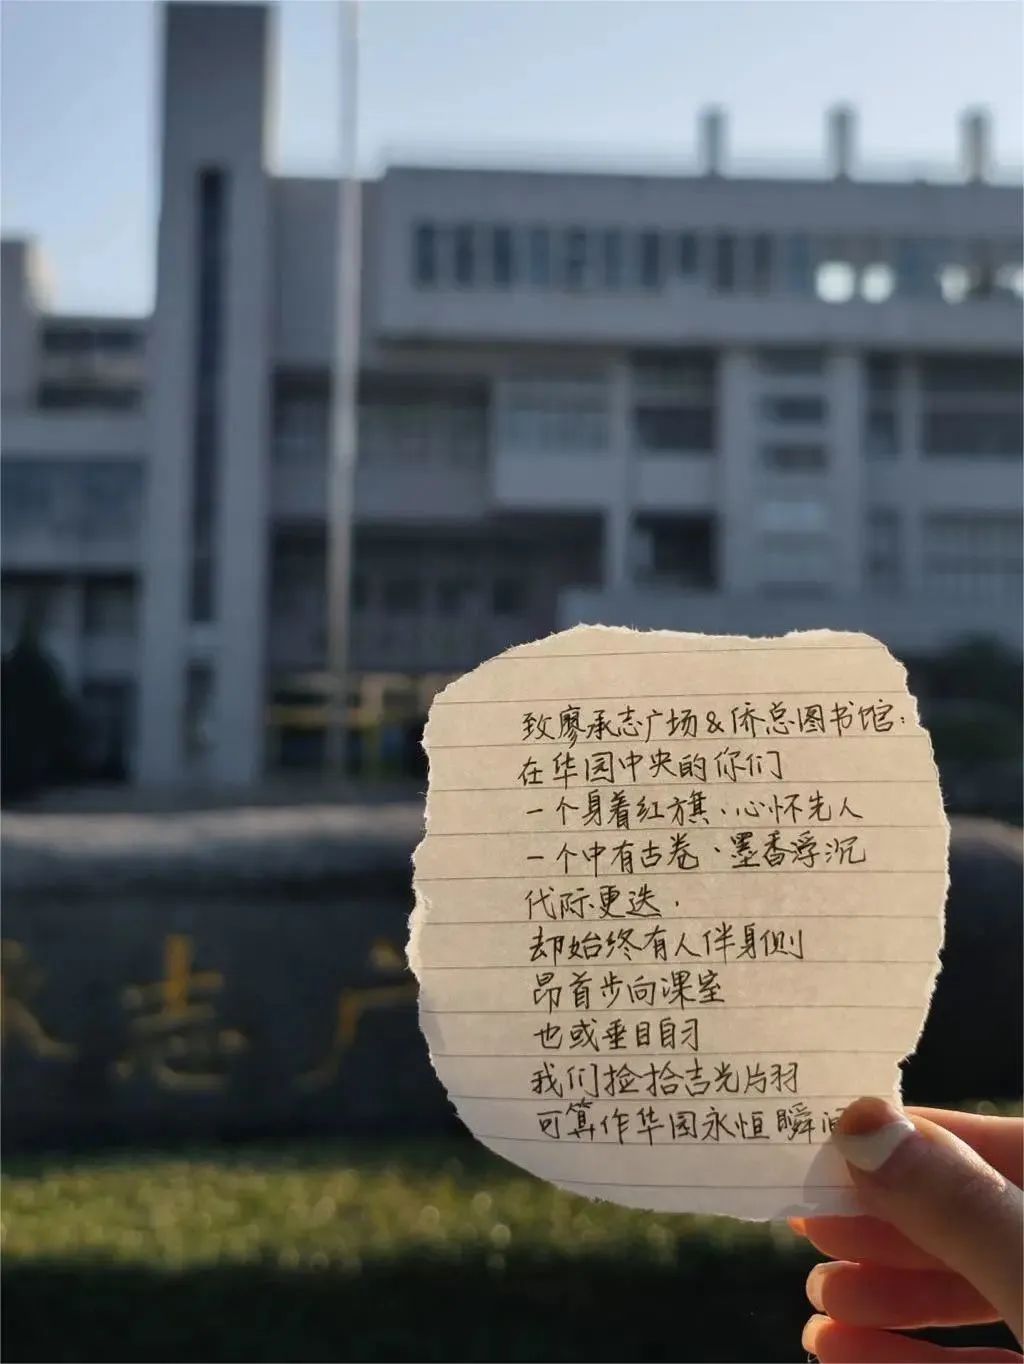 致廖承志广场&侨总图书馆:
在华园中央的你们
一个身着红旗、心怀先人
一个中有古卷、墨香浮沉
代际更迭,
却始终有人伴身侧
昂首步向课室
也或垂目自习
我们捡拾吉光片羽
可算作华园永恒瞬间
志广